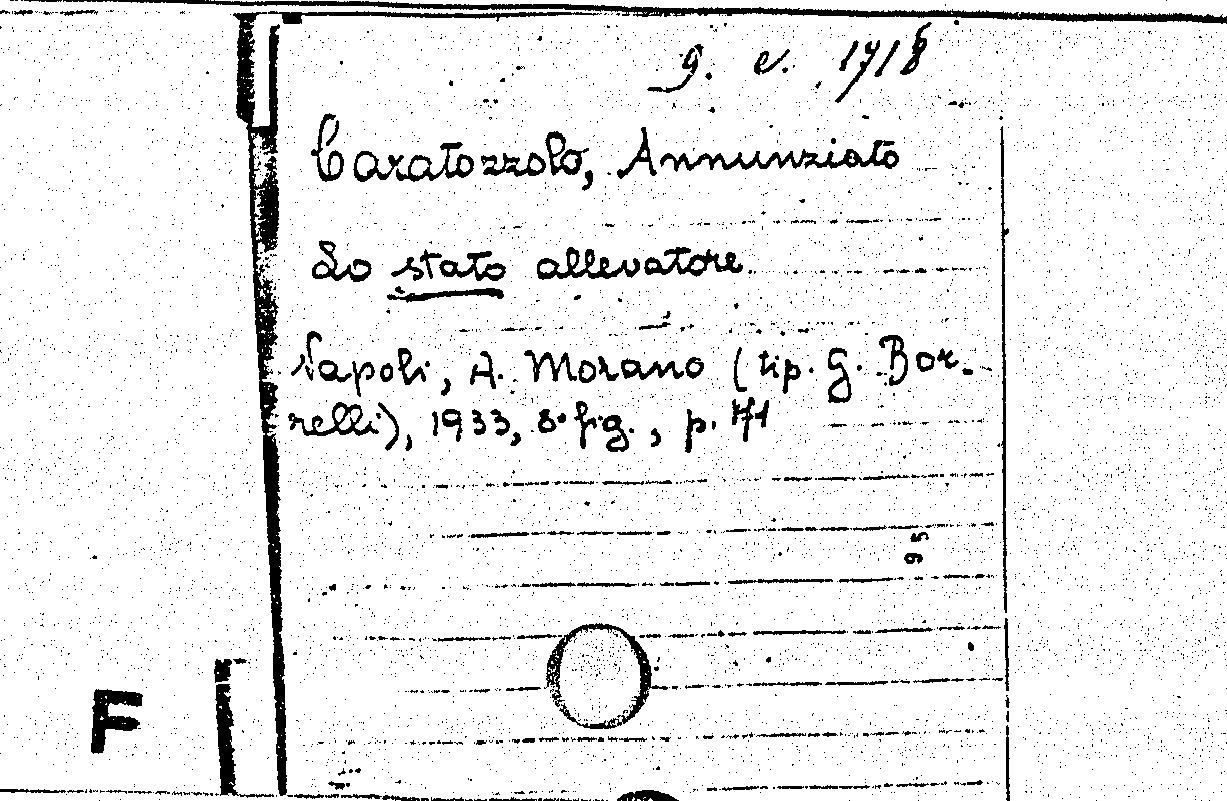 g. e. 1718
Caratozzolo, Annunziato
Lo stato allevatore
Napoli, A. Morano (tip. G. Bor-
relli), 1933, 8° fig., p. 71
95
F